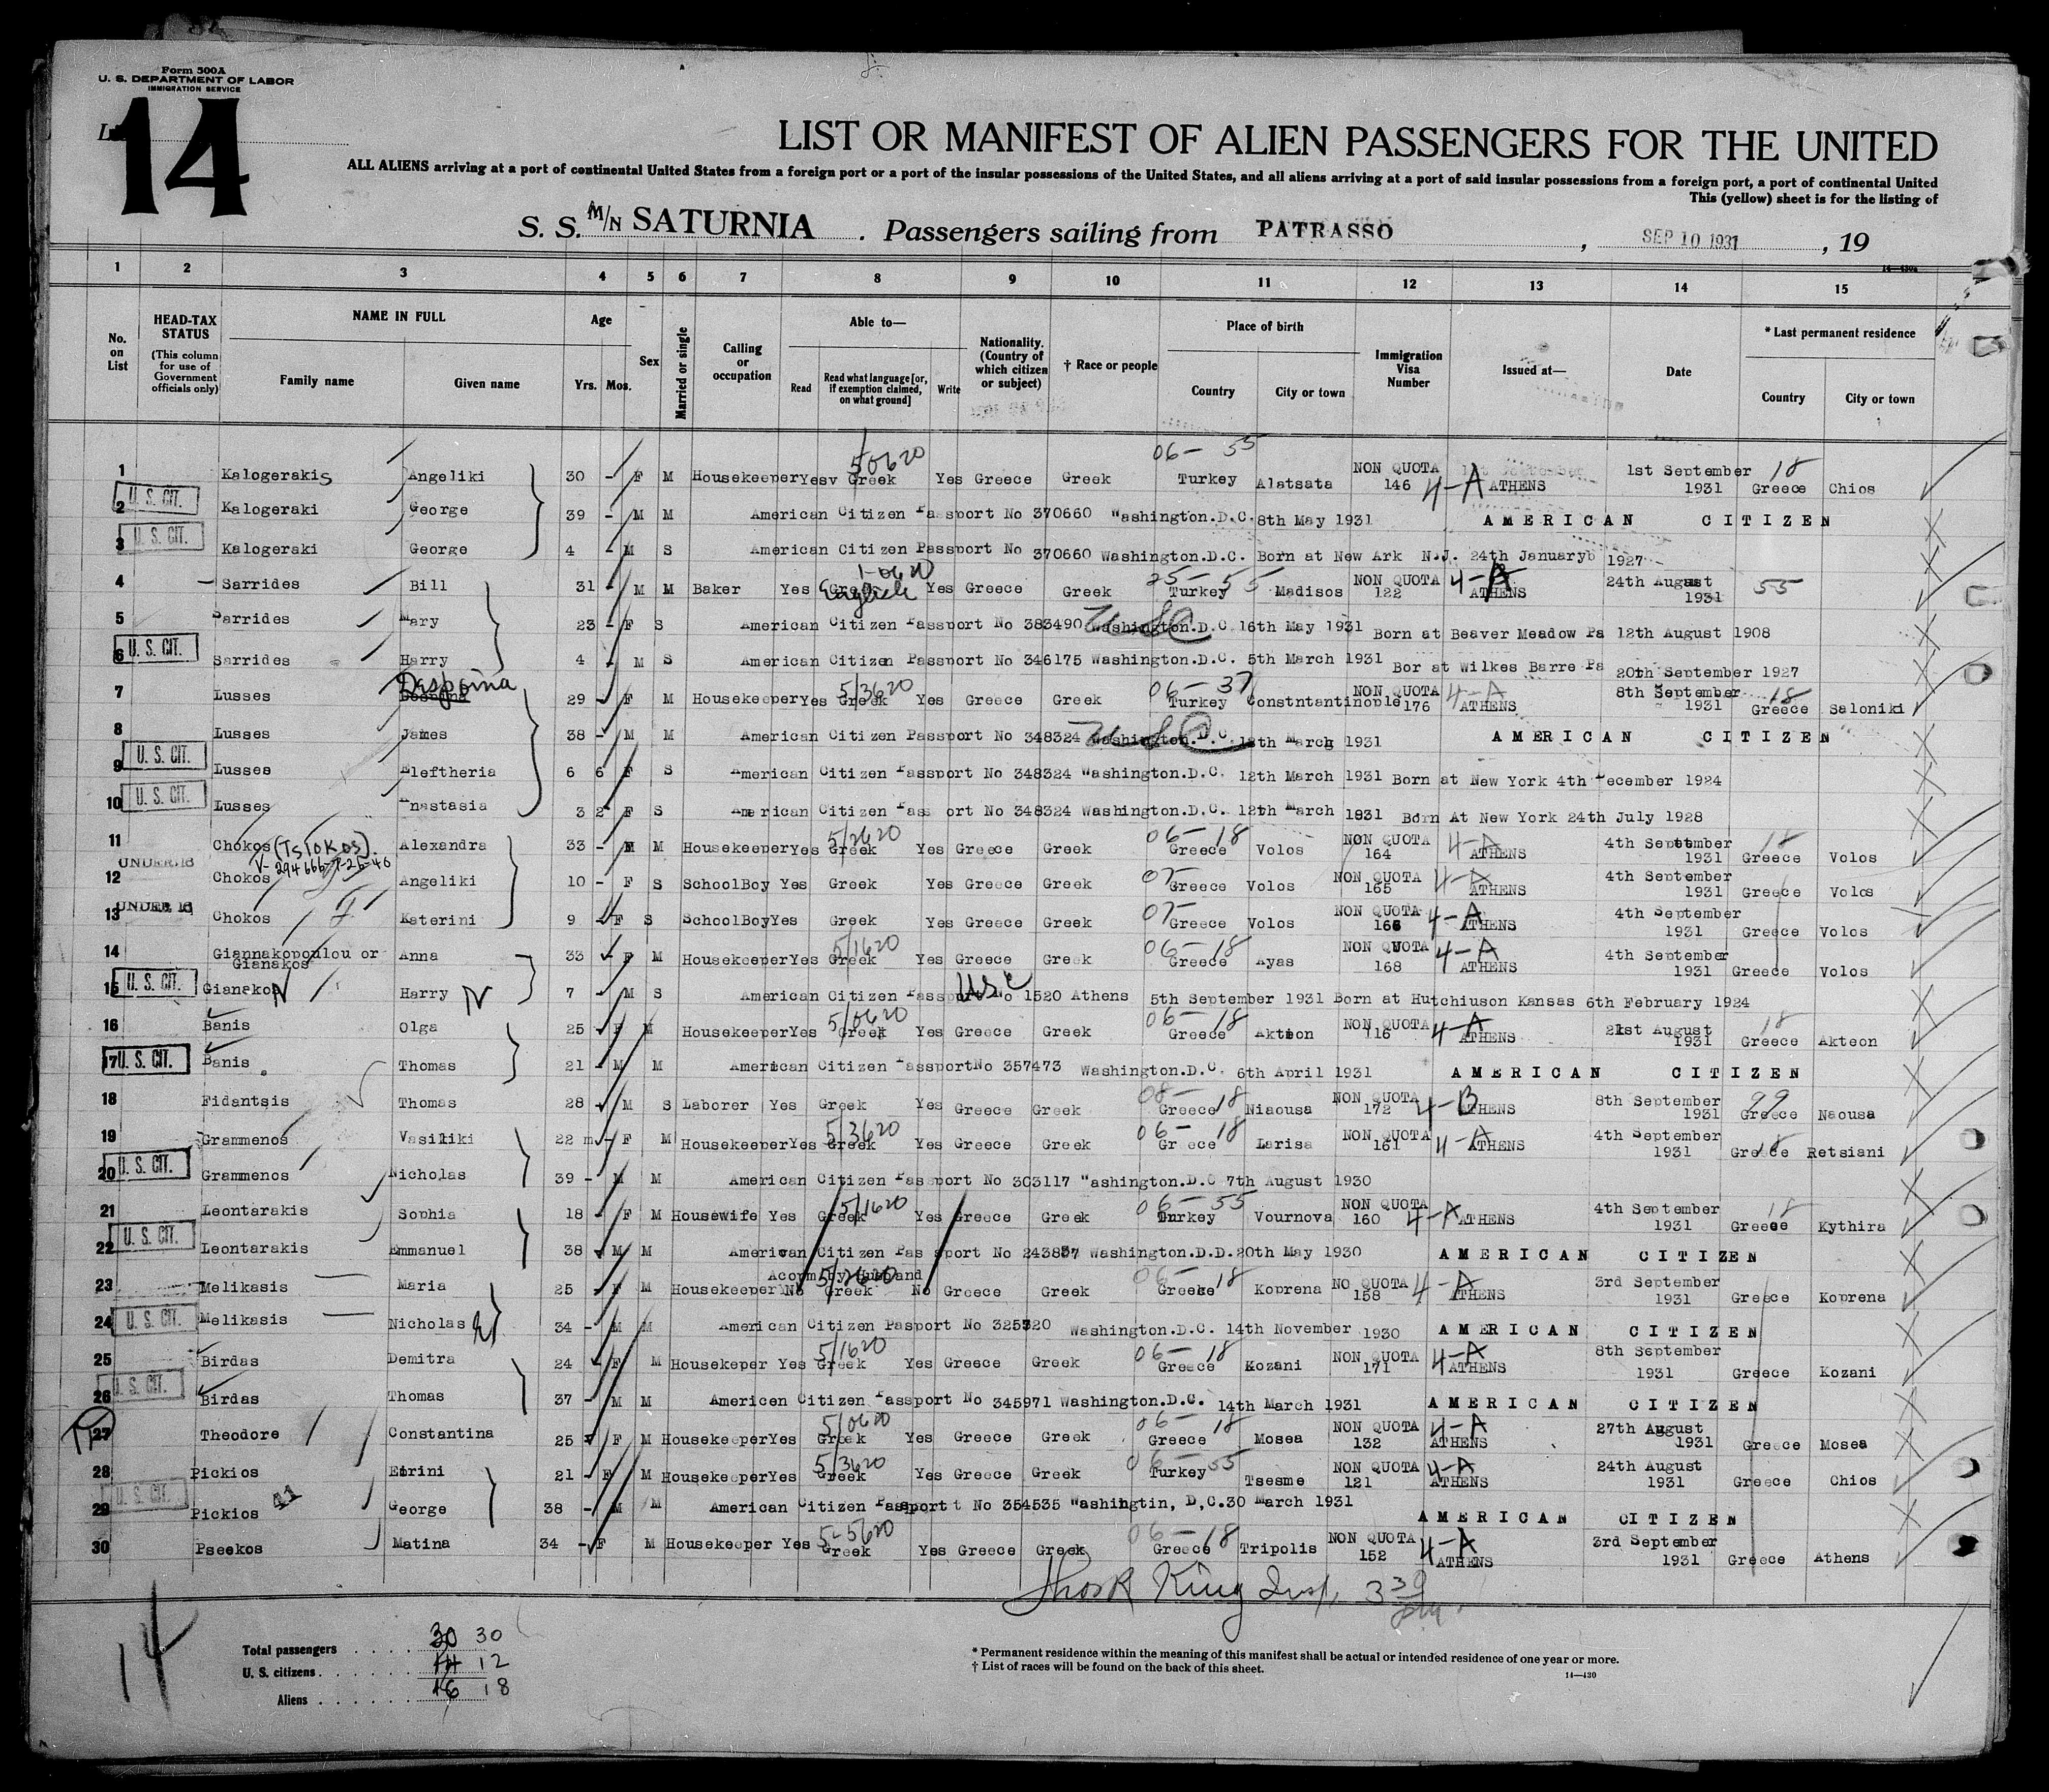 Form 500A
U. S. DEPARTMENT OF LABOR
IMMIGRATION SERVICE
14
LIST OR MANIFEST OF ALIEN PASSENGERS FOR THE UNITED
ALL ALIENS arriving at a port of continental United States from a foreign port or a port of the insular possessions of the United States, and all aliens arriving at a port of said insular possessions from a foreign port, a port of continental United
This (yellow) sheet is for the listing of
S. S. M/N SATURNIA. Passengers sailing from PATRASSO, SEP 10 1931, 19
14—430a
1 2 3 4 5 6 7 8 9 10 11 12 13 14 15
No. on List
HEAD-TAX STATUS
(This column for use of Government officials only)
NAME IN FULL
Family name Given name
Age
Yrs. Mos.
Sex
Married or single
Calling or occupation
Able to—
Read Read what language [or, if exemption claimed, on what ground] Write
Nationality. (Country of which citizen or subject)
† Race or people
Place of birth
Country City or town
Immigration Visa Number
Issued at—
Date
* Last permanent residence
Country City or town
1 Kalogerakis Angeliki 30 - F M Housekeeper Yesv Greek 50620 Yes Greece Greek 06- 55 Turkey Alatsata NON QUOTA 146 4-A ATHENS 1st September 1931 18 Greece Chios
2 U. S. CIT. Kalogeraki George 39 - M M American Citizen Passport No 370660 Washington.D.C. 8th May 1931 AMERICAN CITIZEN
3 U. S. CIT. Kalogeraki George 4 - M S American Citizen Passport No 370660 Washington.D.C. Born at New Ark N.J. 24th January 1927
4 Sarrides Bill 31 - M M Baker Yes Greek English 1-0620 Yes Greece Greek 25-55 Turkey Madisos NON QUOTA 122 4-A ATHENS 24th August 1931 55
5 Sarrides Mary 23 - F S American Citizen Passport No 383490 Washington.D.C. 16th May 1931 Born at Beaver Meadow Pa 12th August 1908
6 U. S. CIT. Sarrides Harry 4 - M S American Citizen Passport No 346175 Washington.D.C. 5th March 1931 Bor at Wilkes Barre Pa 20th September 1927
7 Lusses Despoina 29 - F M Housekeeper Yes Greek 5/3620 Yes Greece Greek 06-37 Turkey Constntantinople NON QUOTA 176 4-A ATHENS 8th September 1931 18 Greece Saloniki
8 Lusses James 38 - M M American Citizen Passport No 348324 Washington.D.C. 12th March 1931 AMERICAN CITIZEN
9 U. S. CIT. Lusses Eleftheria 6 6 F S American Citizen Passport No 348324 Washington.D.C. 12th March 1931 Born at New York 4th December 1924
10 U. S. CIT. Lusses Anastasia 3 2 F S American Citizen Pass ort No 348324 Washington.D.C. 12th March 1931 Born At New York 24th July 1928
11 Chokos (Tsiokos). Alexandra 33 - F M Housekeeper Yes Greek 5/2620 Yes Greece Greek 06-18 Greece Volos NON QUOTA 164 4-A ATHENS 4th September 1931 18 Greece Volos
UNDER 16 V-294666-7-26-46
12 Chokos Angeliki 10 - F S SchoolBoy Yes Greek Yes Greece Greek 07- Greece Volos NON QUOTA 165 4-A ATHENS 4th September 1931 Greece Volos
UNDER 16
13 Chokos Katerini 9 - F S SchoolBoy Yes Greek Yes Greece Greek 07- Greece Volos NON QUOTA 166 4-A ATHENS 4th September 1931 Greece Volos
14 Giannakopoulou or Gianakos Anna 33 - F M Housekeeper Yes Greek 5/1620 Yes Greece Greek 06-18 Greece Ayas NON QUOTA 168 4-A ATHENS 4th September 1931 Greece Volos
15 U. S. CIT. Gianakos N Harry N 7 - M S American Citizen Passport No 1520 USC Athens 5th September 1931 Born at Hutchiuson Kansas 6th February 1924
16 Banis Olga 25 F M Housekeeper Yes Greek 5/0620 Yes Greece Greek 06-18 Greece Akteon NON QUOTA 116 4-A ATHENS 21st August 1931 18 Greece Akteon
17 U. S. CIT. Banis Thomas 21 - M M American Citizen PassportNo 357473 Washington.D.C. 6th April 1931 AMERICAN CITIZEN
18 Fidantsis Thomas 28 M S Laborer Yes Greek Yes Greece Greek 08-18 Greece Niaousa NON QUOTA 172 4-B ATHENS 8th September 1931 99 Greece Naousa
19 Grammenos Vasiliki 22 m - F M Housekeeper Yes Greek 5/3620 Yes Greece Greek 06-18 Greece Larisa NON QUOTA 161 4-A ATHENS 4th September 1931 18 Greece Retsiani
20 U. S. CIT. Grammenos Nicholas 39 - M M American Citizen Passport No 303117 Washington.D.C 7th August 1930
21 Leontarakis Sophia 18 - F M Housewife Yes Greek 5/1620 Yes Greece Greek 06-55 Turkey Vournova NON QUOTA 160 4-A ATHENS 4th September 1931 18 Greece Kythira
22 U. S. CIT. Leontarakis Emmanuel 38 M M American Citizen Pas sport No 243837 Washington.D.D.20th May 1930 AMERICAN CITIZEN
23 Melikasis Maria 25 F M Housekeeper No Acom.by Husband Greek 5/2620 No Greece Greek 06-18 Greece Koprena NO QUOTA 158 4-A ATHENS 3rd September 1931 Greece Koprena
24 U. S. CIT. Melikasis Nicholas 34 - M M American Citizen Pasport No 325320 Washington.D.C. 14th November 1930 AMERICAN CITIZEN
25 Birdas Demitra 24 F M Housekeper Yes Greek 5/1620 Yes Greece Greek 06-18 Greece Kozani NON QUOTA 171 4-A ATHENS 8th September 1931 Greece Kozani
26 U. S. CIT. Birdas Thomas 37 - M M Americen Citizen Passport No 345971 Washington.D.C. 14th March 1931 AMERICAN CITIZEN
27 Theodore Constantina 25 F M Housekeeper Yes Greek 5/0620 Yes Greece Greek 06-18 Greece Mosea NON QUOTA 132 4-A ATHENS 27th August 1931 Greece Mosea
28 Pickios Eirini 21 - F M Housekeeper Yes Greek 5/3620 Yes Greece Greek 06-55 Turkey Tsesme NON QUOTA 121 4-A ATHENS 24th August 1931 Greece Chios
29 U. S. CIT. Pickios 41 George 38 - M M American Citizen Passport No 354535 Washingtin, D,C.30 March 1931 AMERICAN CITIZEN
30 Pseekos Matina 34 - F M Housekeeper Yes Greek 5-5620 Yes Greece Greek 06-18 Greece Tripolis NON QUOTA 152 4-A ATHENS 3rd September 1931 Greece Athens
King Insp. 3 30
14
Total passengers . . . . 30 30
U. S. citizens . . . . . . 14 12
Aliens . . . . . . . 16 18
* Permanent residence within the meaning of this manifest shall be actual or intended residence of one year or more.
† List of races will be found on the back of this sheet.
14—430